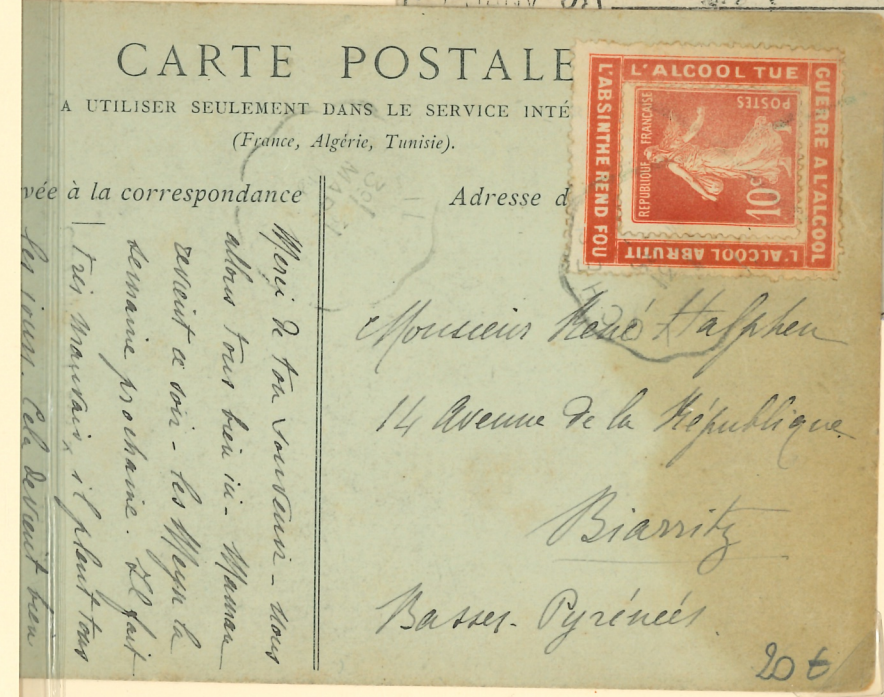 CARTE POSTALE
A UTILISER SEULEMENT DANS LE SERVICE INTÉ
(France, Algérie, Tunisie).
vée à la correspondance
Adresse d
L'ALCOOL TUE
GUERRE A L'ALCOOL
L'ALCOOL ABRUTIT
L'ABSINTHE REND FOU
REPUBLIQUE FRANÇAISE
POSTES
10c
Merci de ton souvenir - nous
allons tous bien ici - Maman
revient ce soir - les Meyer la
semaine prochaine. Il fait
très mauvais, il pleut tous
les jours. Cela devient bien
Monsieur René Halphen
14 Avenue de la République
Biarritz
Basses-Pyrénées
20 t